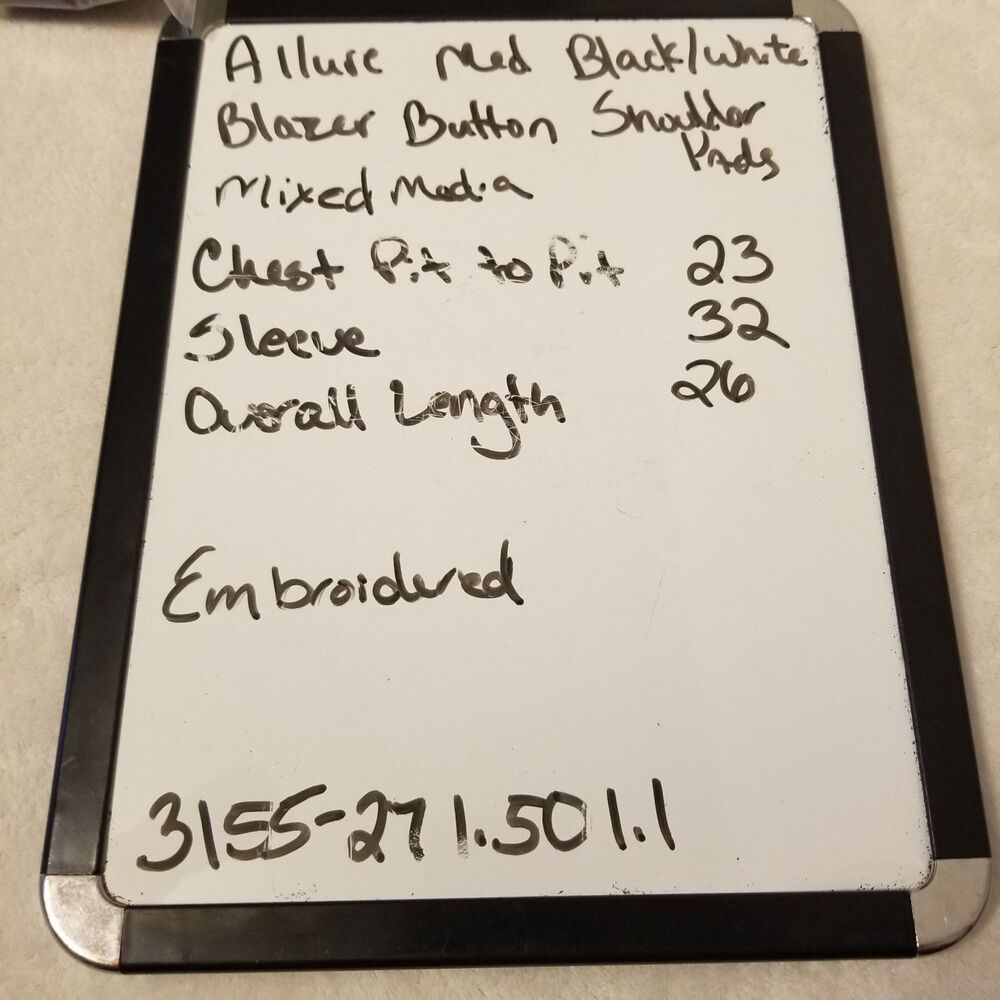 Allure Med Black/White
Blazer Button Shoulder
Pads
Mixed Media
Chest Pit to Pit 23
Sleeve 32
Overall Length 26
Embroidered
3155-27 1.50 1.1